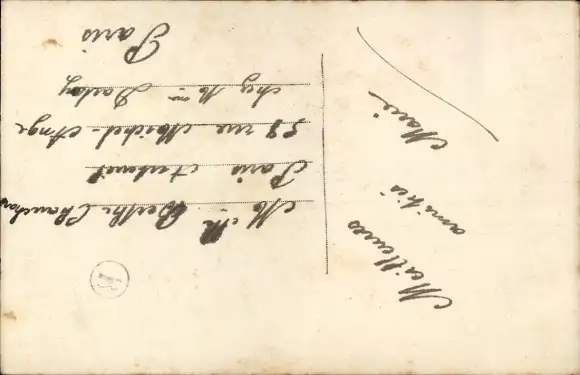 Meilleures
amitiés
Marie
M Berthe Chauchoy
Paris Auteuil
58 rue Michel-Ange
chez Mme Darlay
Paris